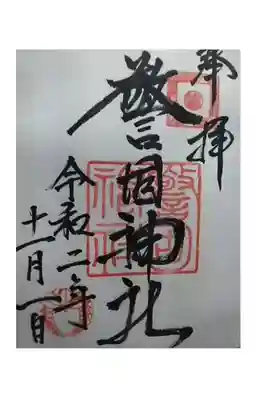 奉拝
警固神社
令和二年
十一月一日